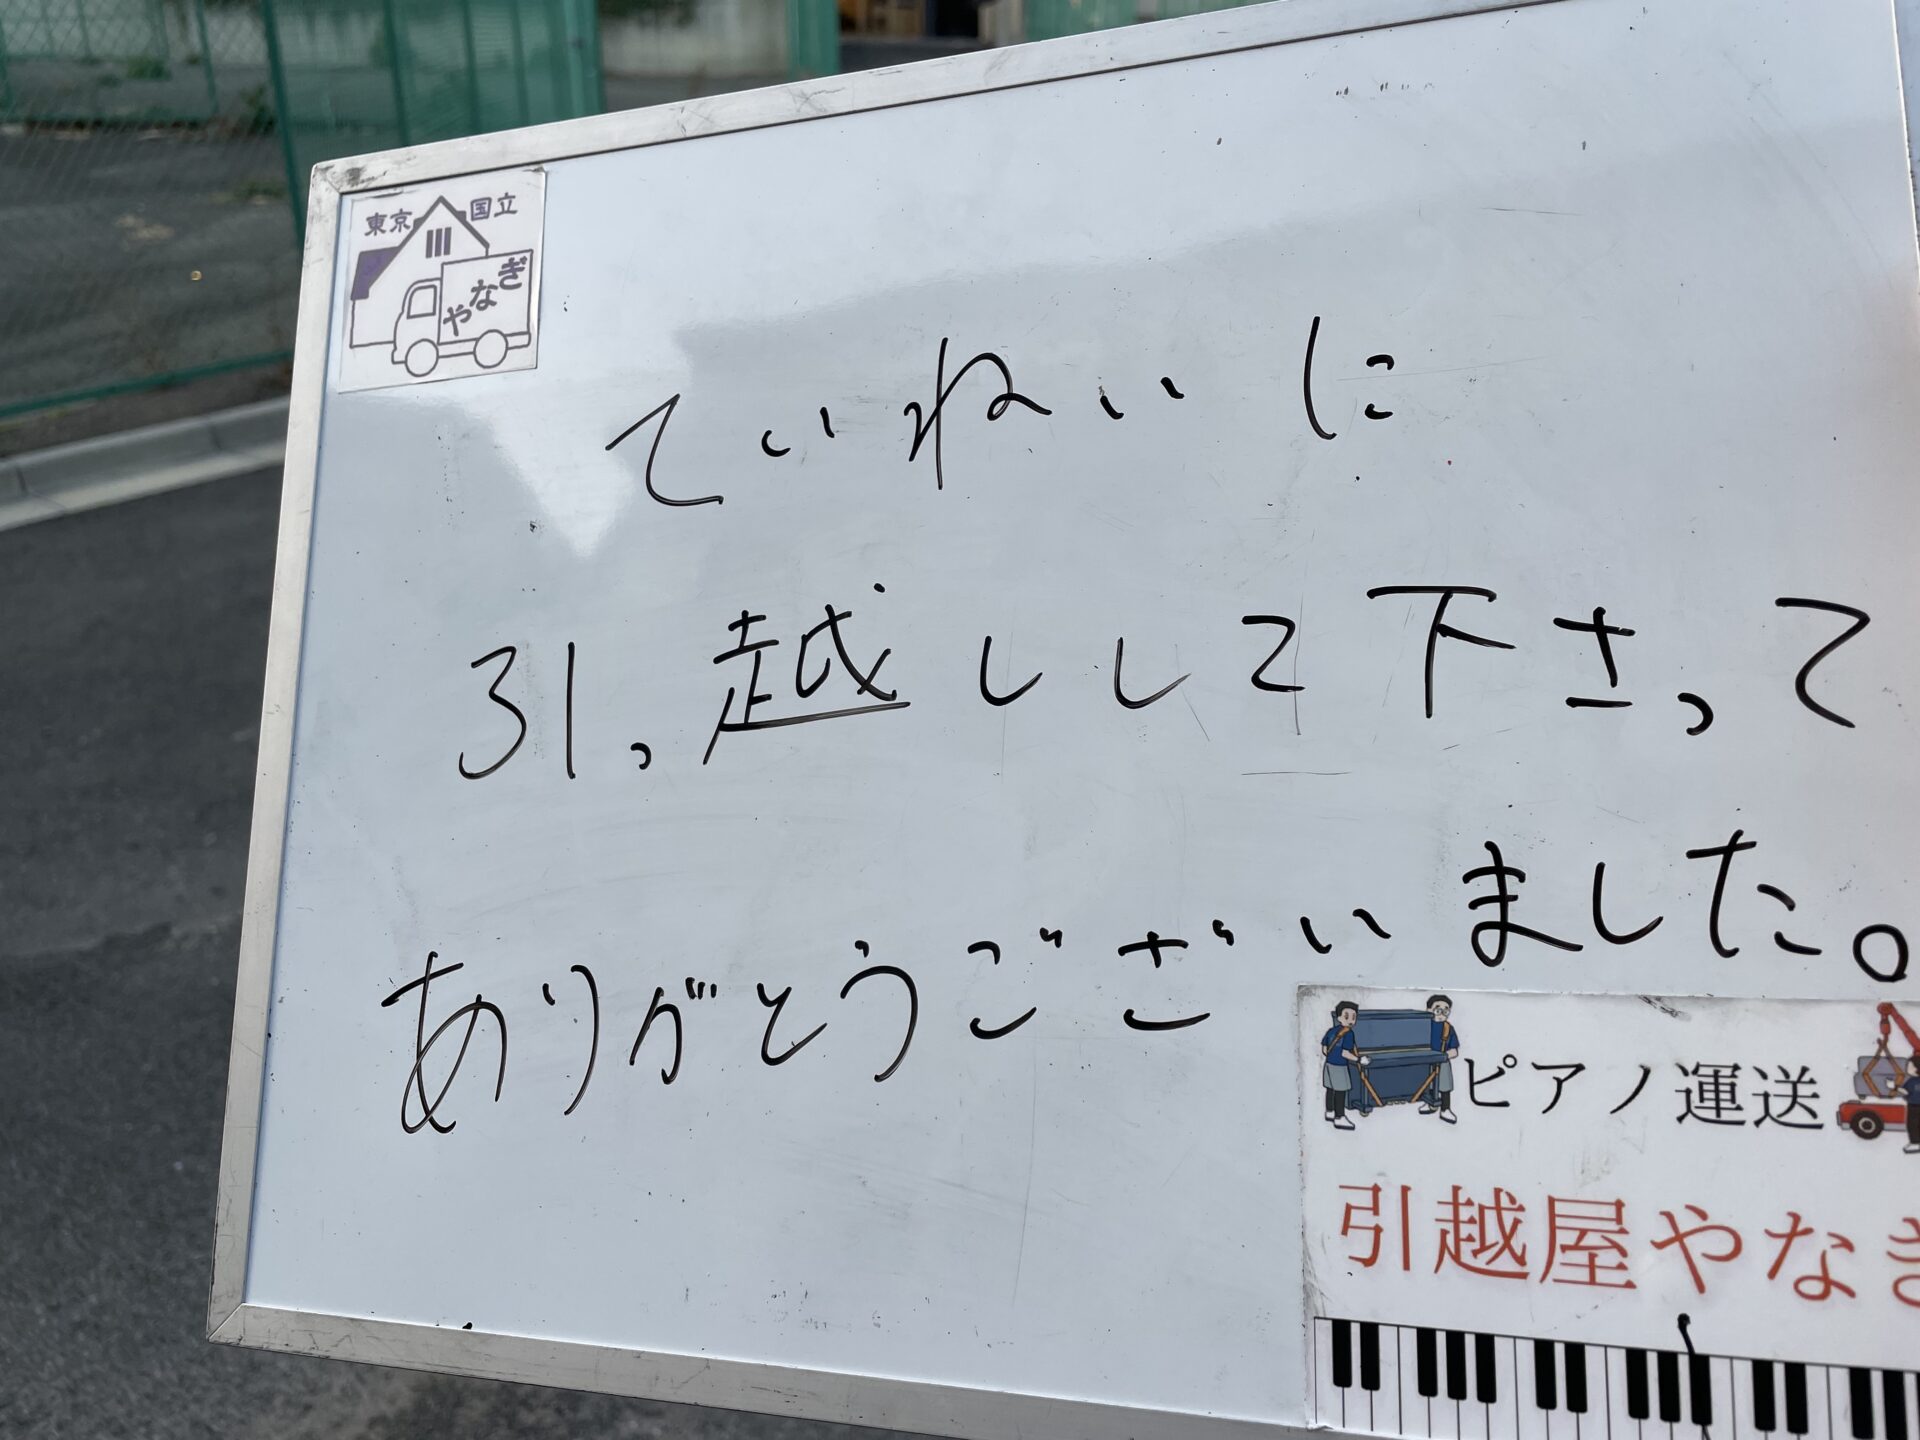 東京 国立
やなぎ
ていねいに
引っ越ししして下さって
ありがとうございました。
ピアノ運送
引越屋やなぎ